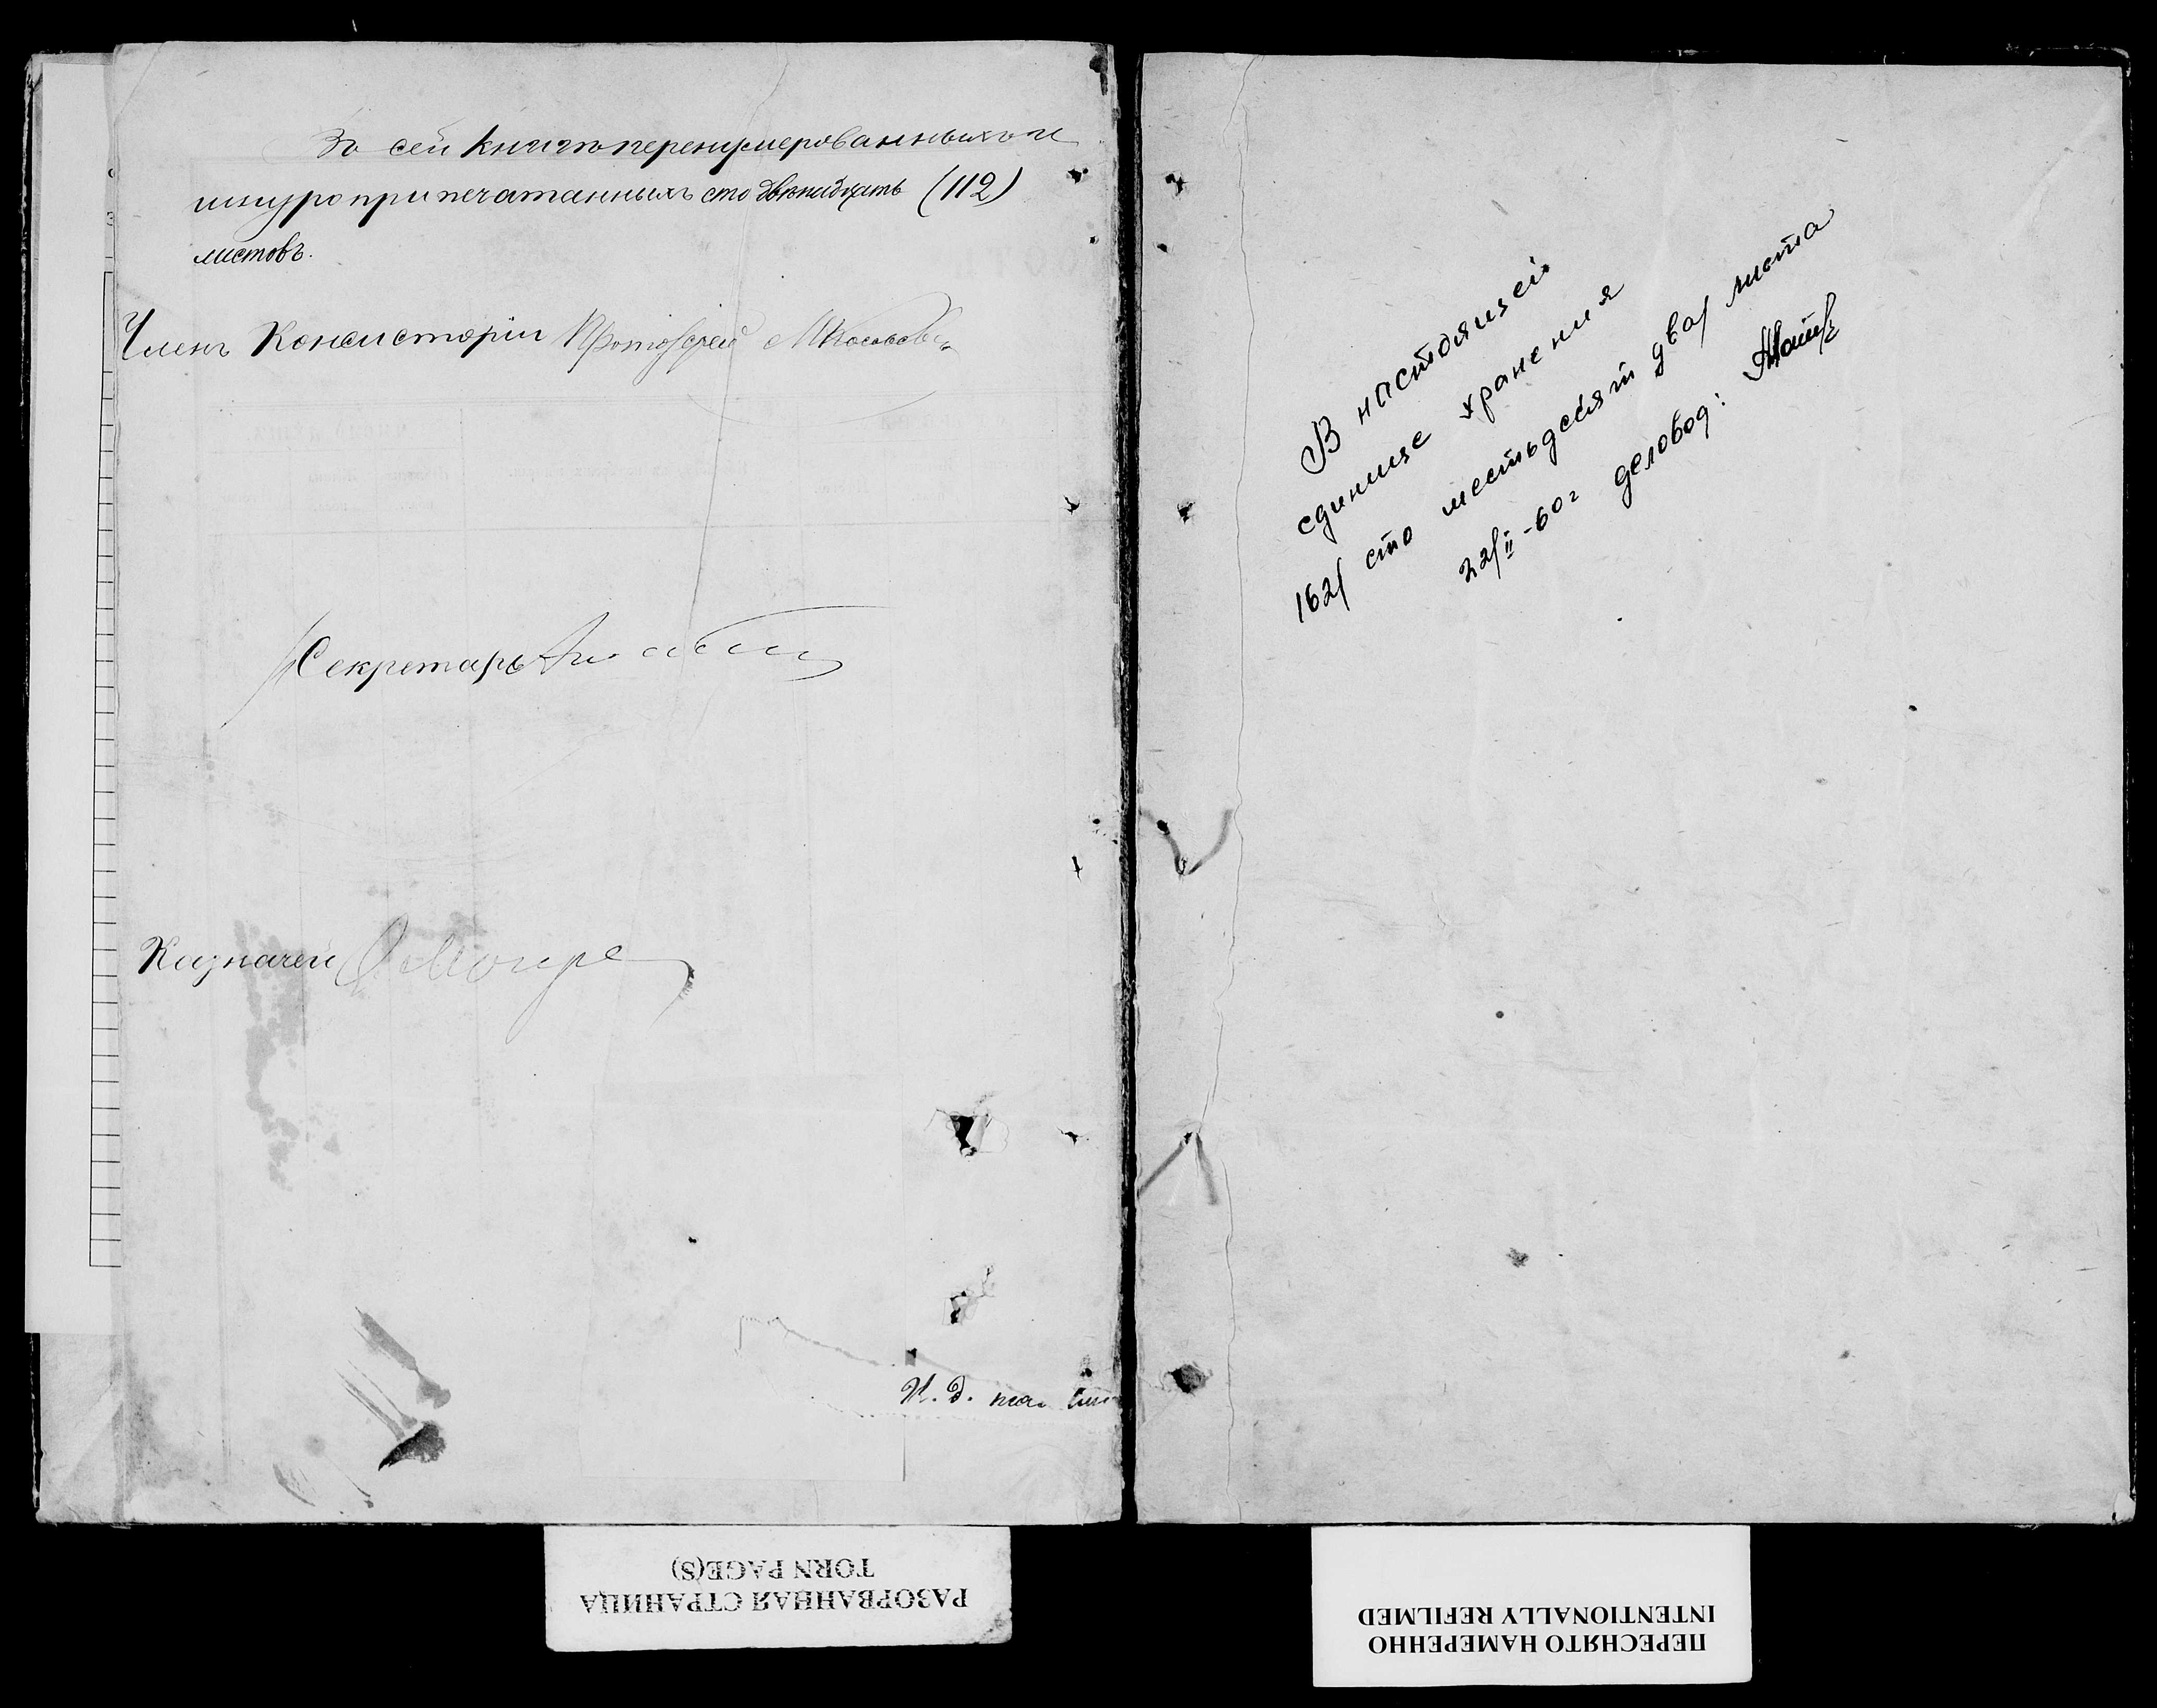 Въ сей книгѣ перенумерованныхъ и
шнуроприпечатанныхъ сто двѣнадцать (112)
листовъ.
Членъ Консисторіи Протоіерей
Секретарь
Казначей
И. д.
В настоящей
единице хранения
162/ сто шестьдесят два/ листа
22/II-60г деловод:
РАЗОРВАННАЯ СТРАНИЦА
TORN PAGE(S)
ПЕРЕСНЯТО НАМЕРЕННО
INTENTIONALLY REFILMED